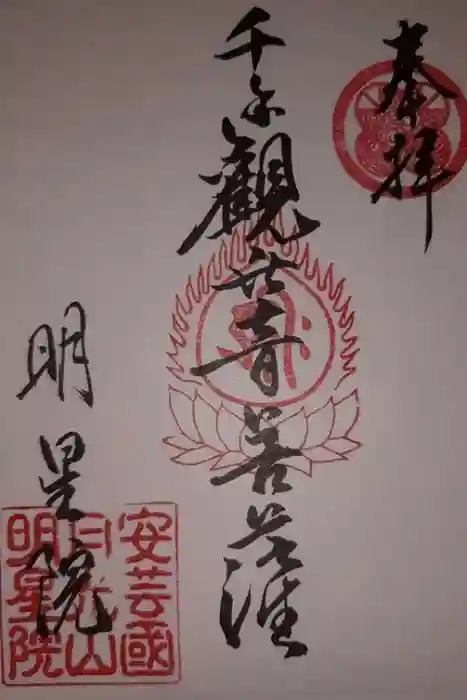 奉拝
千手觀世音菩薩
明星院
安芸國
明星院